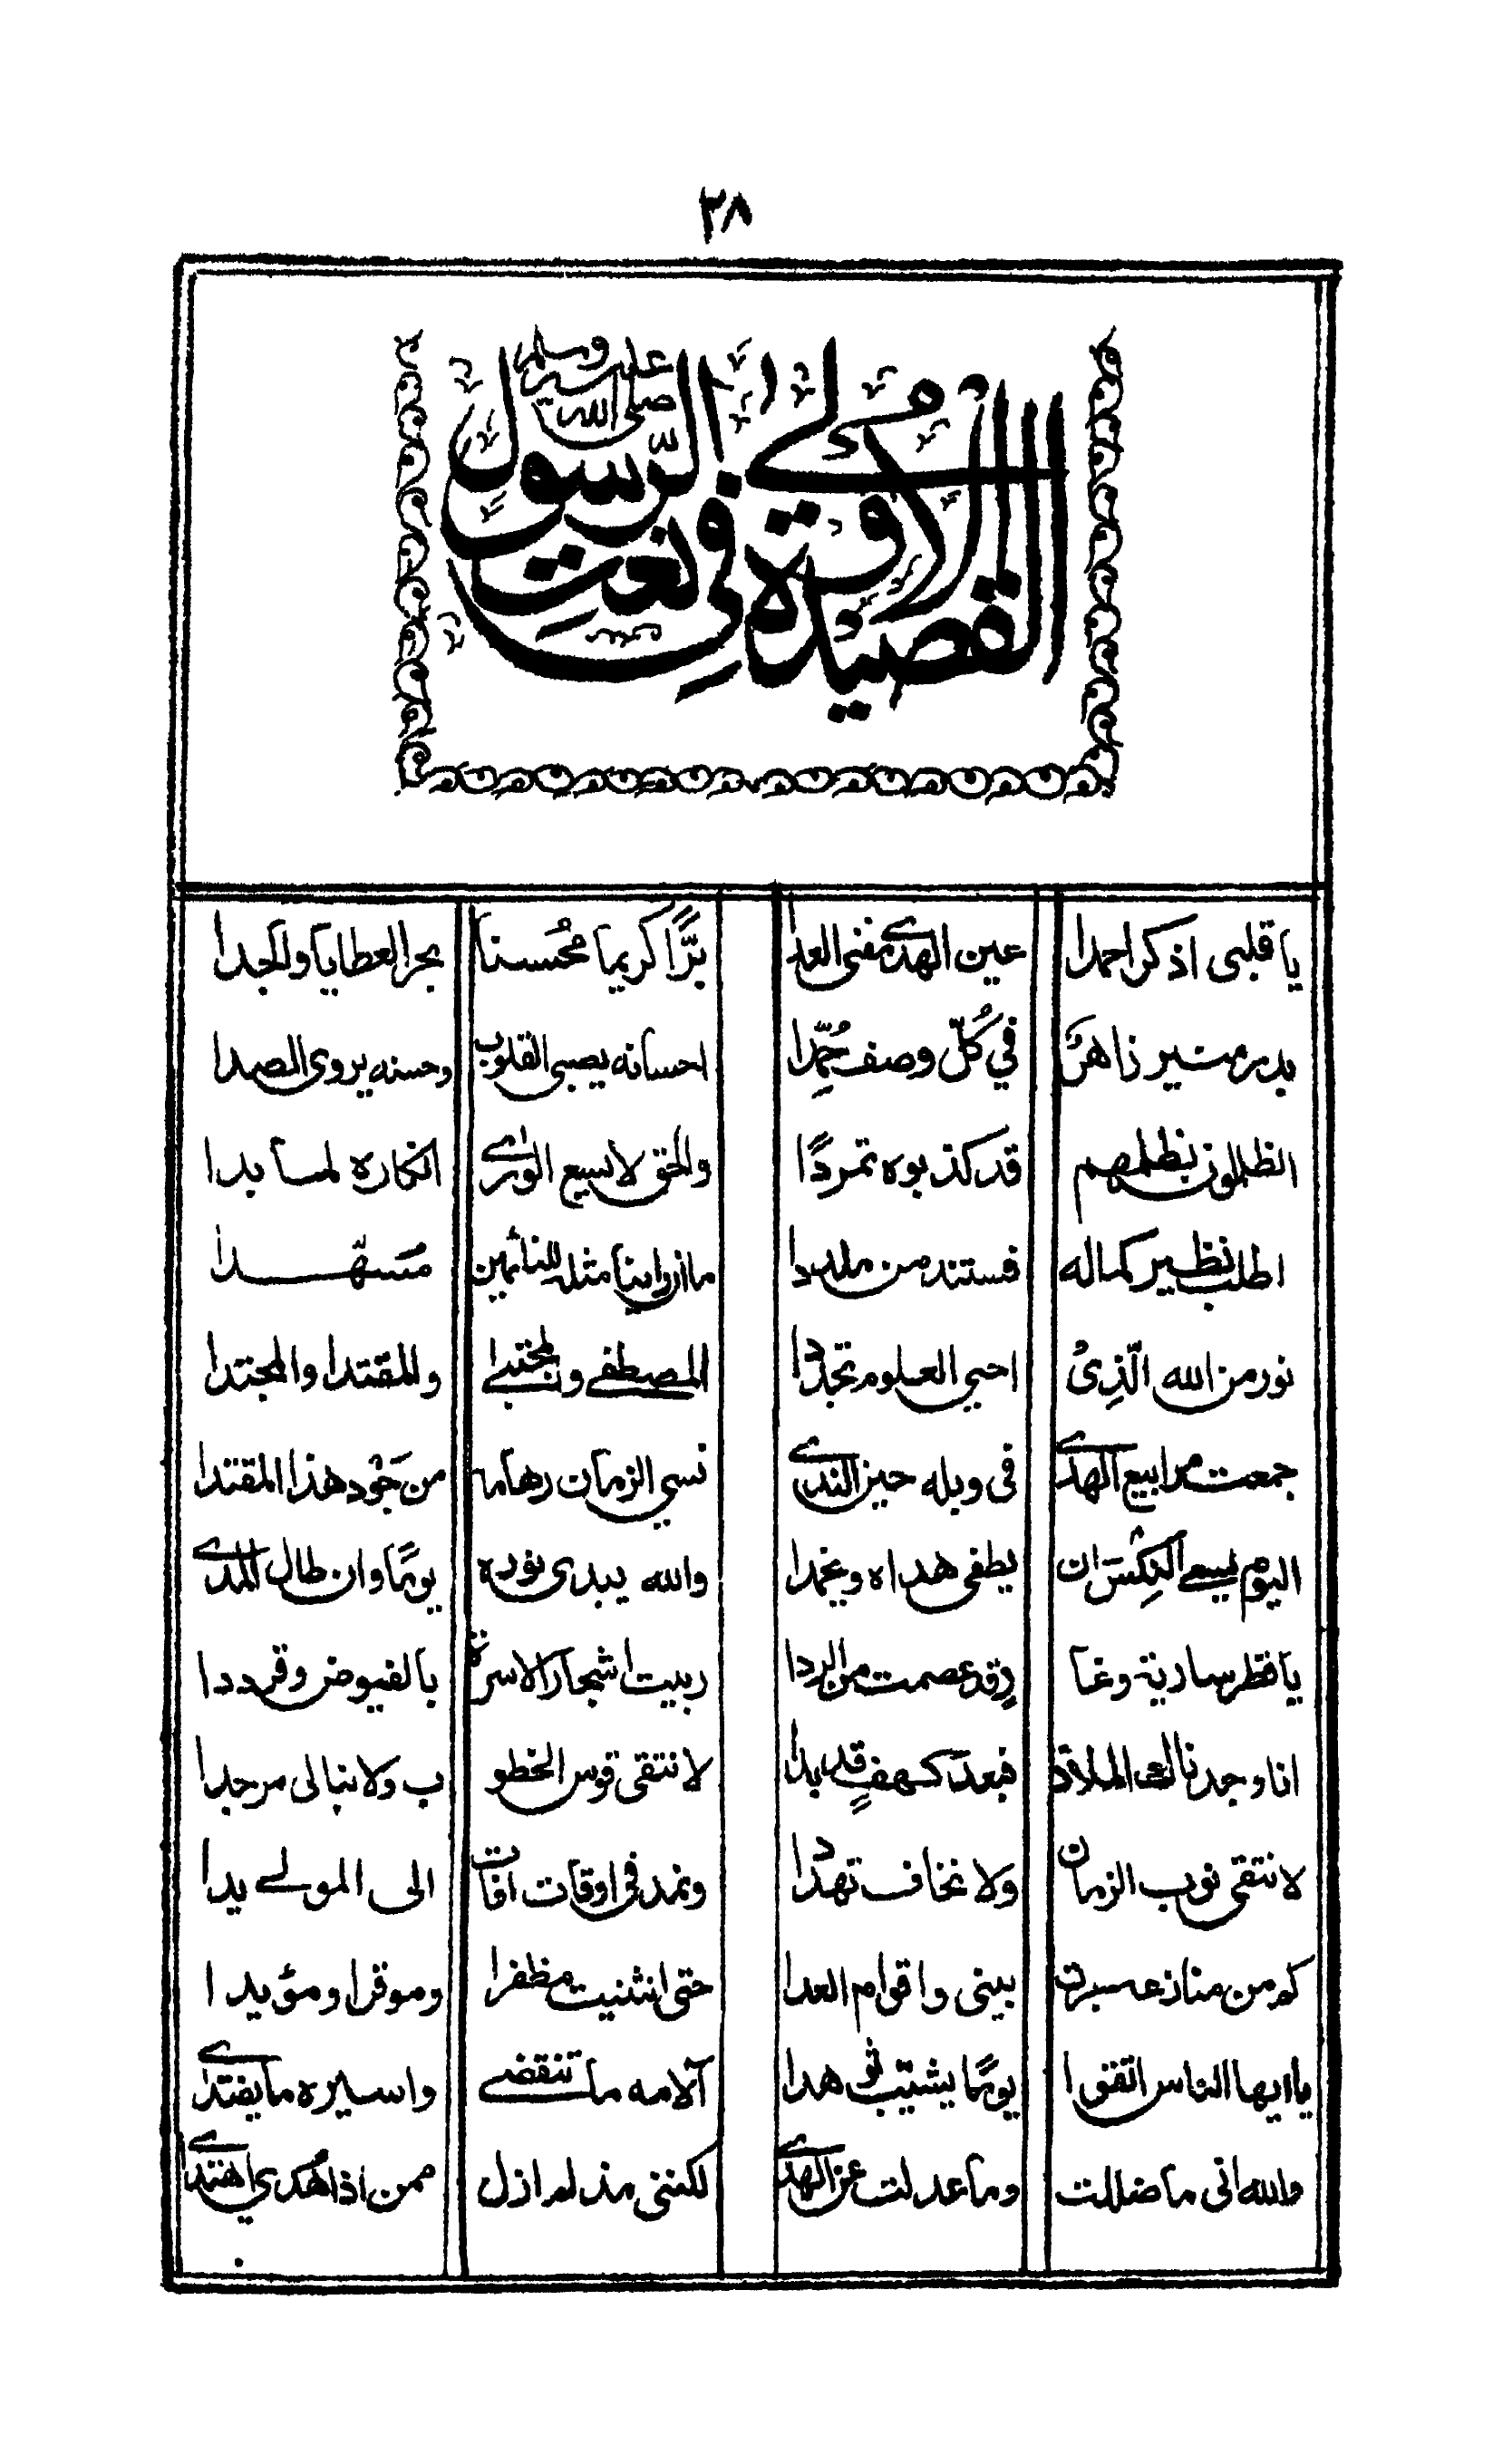 ٣٨
القصيدة الاولىٰ في نعت الرسول صلى الله عليه وسلم
يا قلبى اذكر احمدا عين الهدى مفنى العدا برًّا كريما مُحسنا بحر العطايا والجدا
بدر منير زاهرٌ في كُلّ وصف حُمِّدا احسانه يصبى القلوب وحسنه يروى الصدا
الظلمون بظلمهم قد كذبوه تمردًا والحق لا يسع الورىٰ انكاره لما بدا
اطلب نظير كماله فستندمن ملددا ما ان رءينا مثله للنائمين مسهّدا
نور من الله الّذِىْ احيى العلوم تجددا المصطفى والمجتبىٰ والمقتدا والمجتدا
جمعت مرابيع الهدىٰ فى وبله حين الندىٰ نسي الزمان رهامه من جَوْد هذا المقتدا
اليوم يسعى النِكْسَ ان يطفى هداه ويخمدا والله يبدى نوره يومًا وان طال المدىٰ
يا قطر سارية وغا دٍ قد عصمت من الردا ربيت اشجار الاسرة بالفيوض وقرددا
انا وجدناك الملاذ فبعدَ كهفٍ قد بدا لا نتقى قوس الخطو ب ولا نبالى مرجدا
لا نتقى نوب الزمان ولا نخاف تهددا ونمد فى اوقات افات الى المولى يدا
كم من منازعة جرت بينى واقوام العدا حتى انثنيت مظفرا وموقرا ومؤيدا
يا ايها الناس اتقوا يومًا يشيّب ثوهدا آلامه ما تنقضى واسيره ما يفتدىٰ
والله انى ما ضللت وما عدلت عن الهدىٰ لكننى مذ لم ازل ممن اذا هُدي اهتدىٰ